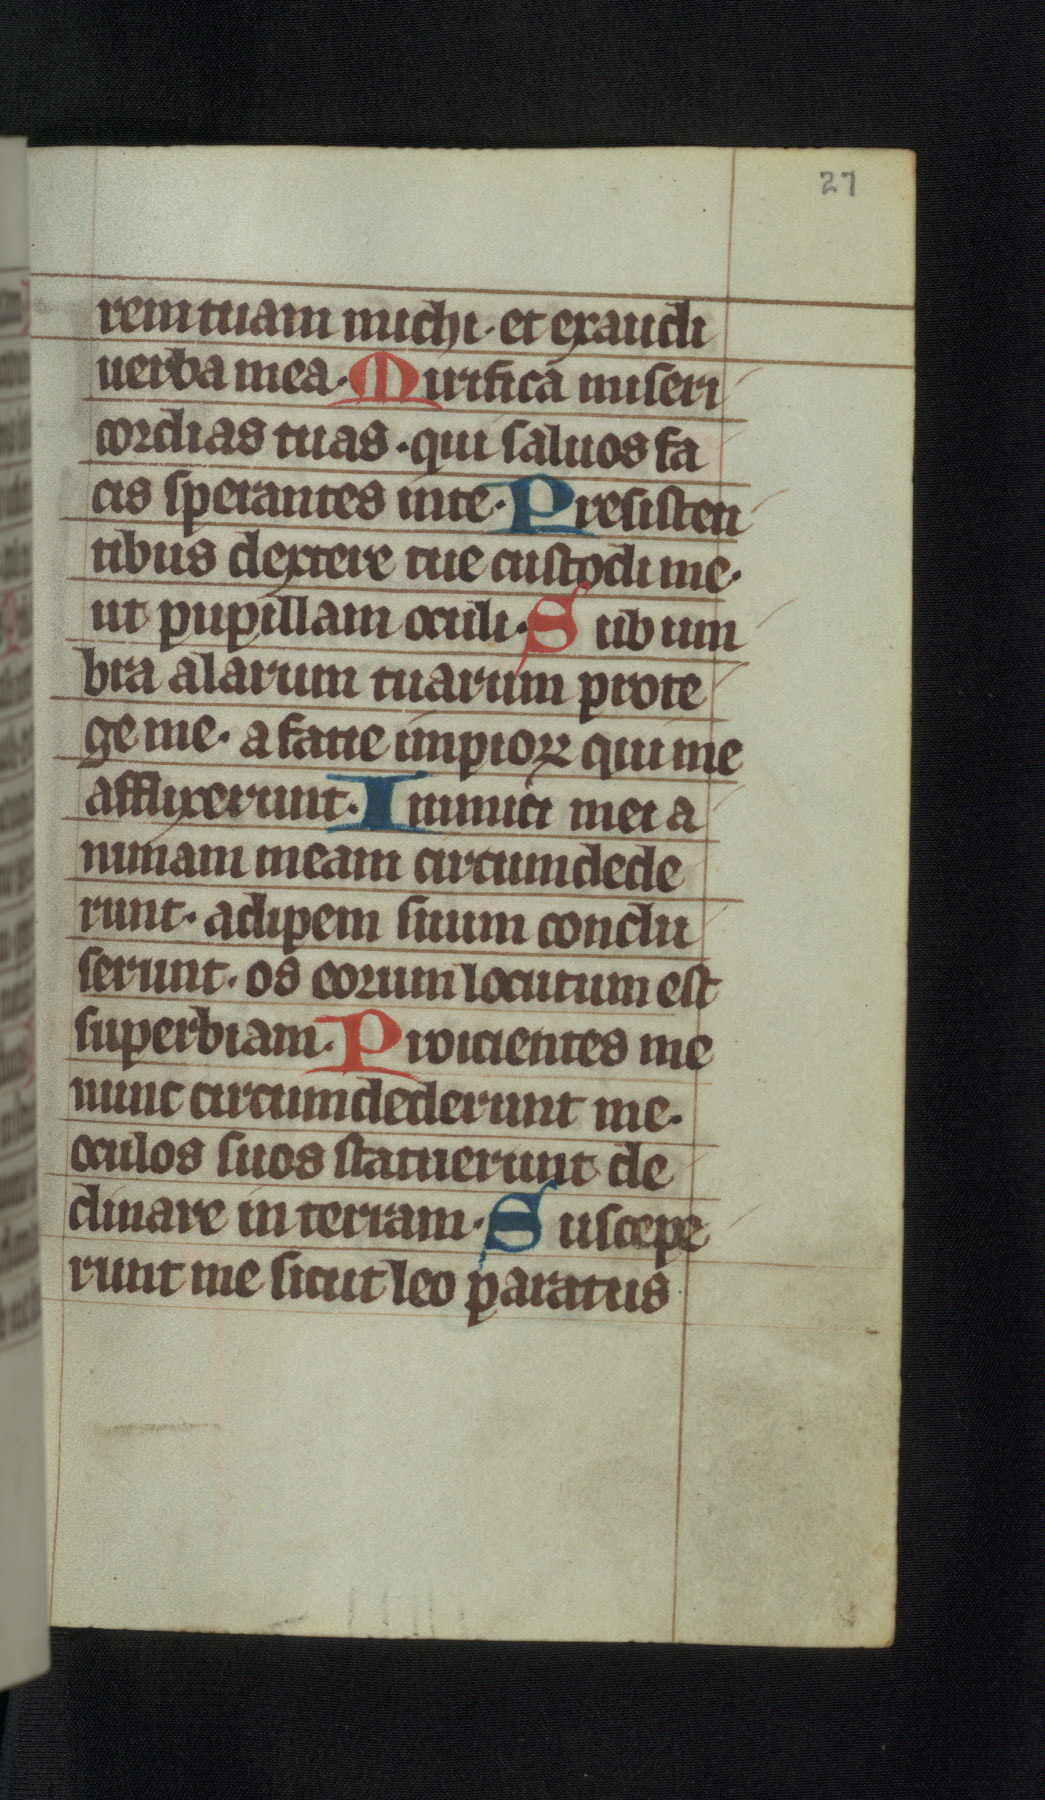 27
rem tuam michi · et exaudi
uerba mea · Mirifica miseri
cordias tuas · qui saluos fa
cis sperantes in te · P resisten
tibus dextere tue custodi me ·
ut pupillam oculi · Sub um
bra alarum tuarum prote
ge me · a facie impioꝝ qui me
afflixerunt · Inimici mei a
nimam meam circumdede
runt · adipem suum conclu
serunt · os eorum locutum est
superbiam · Proicientes me
nunc circumdederunt me ·
oculos suos statuerunt de
clinare in terram · Suscepe
runt me sicut leo paratus